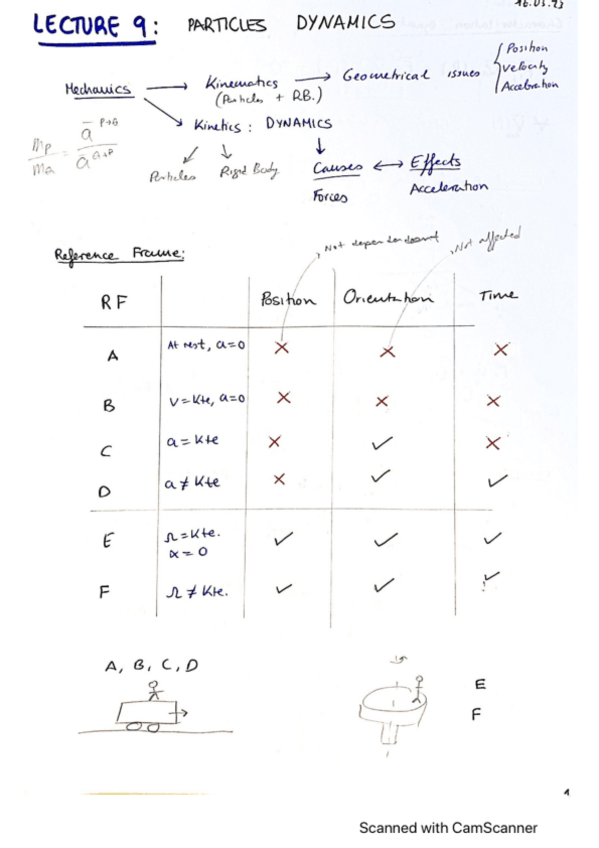 16.03.23
LECTURE 9: PARTICLES DYNAMICS
Mechanics → Kinematics → Geometrical issues { Position
(Particles + R.B.)
Velocity
Acceleration
Kinetics: DYNAMICS
Particles Rigid Body Causes ↔ Effects
Forces Acceleration
Reference Frame:
Not affected
RF Position Orientation Time
A At rest, a=0 × × ×
B v=Kte, a=0 × × ×
C a=Kte × ✓ ×
D a≠Kte × ✓ ✓
E Ω=Kte. ✓ ✓ ✓
α=0
F Ω≠Kte. ✓ ✓ ✓
A, B, C, D
E
F
1
Scanned with CamScanner